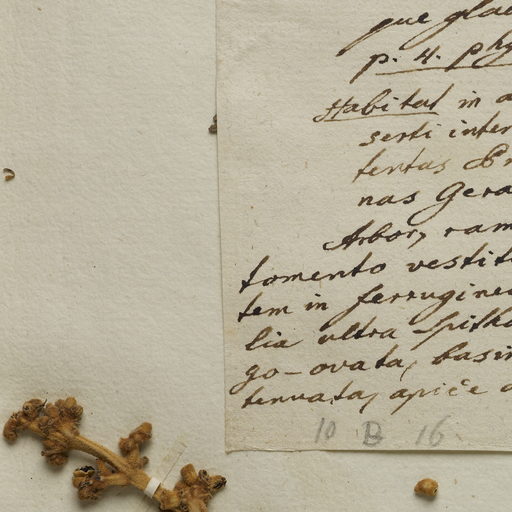 que gla
p. 4. phy
Habitat in a
serti inter
tentas Pr
nas Gera
Arbor, ram
tomento vestit
tem in ferrugine
lia ultra spitha
go-ovata, basi
tenuata, apice a
10 B 16.